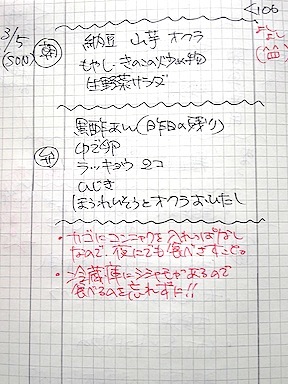 3/5
(SUN)
朝
納豆 山芋 オクラ
もやし・きのこの炒め物
生野菜サラダ
昼
黒酢あん(昨日の残り)
ゆで卵
ラッキョウ 2コ
ひじき
ほうれんそうとオクラおひたし
・カゴにコンニャクを入れっぱなし
なので、夜にでも食べきすこと。
・冷蔵庫にシシャモがあるので
食べるのを忘れずに!!